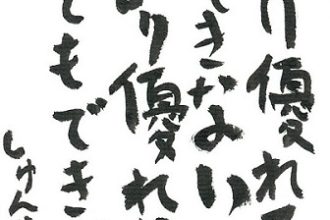 り優れ
きない
り優れ
ともでき
しゅん